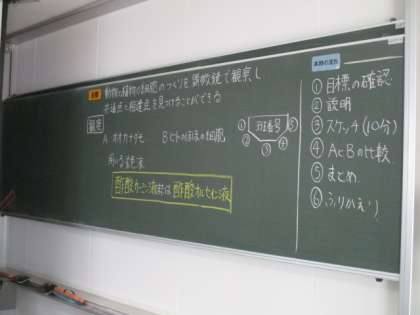 動物と植物の細胞のつくりを顕微鏡で観察し
共通点と相違点を見つけることができる
観察
A オオカナダモ Bヒトのほほの細胞
用いる染色液
酢酸カーミン液または酢酸オルセイン液
① ② ③ ④ ⑤
① 目標の確認
② 説明
③ スケッチ(10分)
④ AとBの比較
⑤ まとめ
⑥ ふりかえり